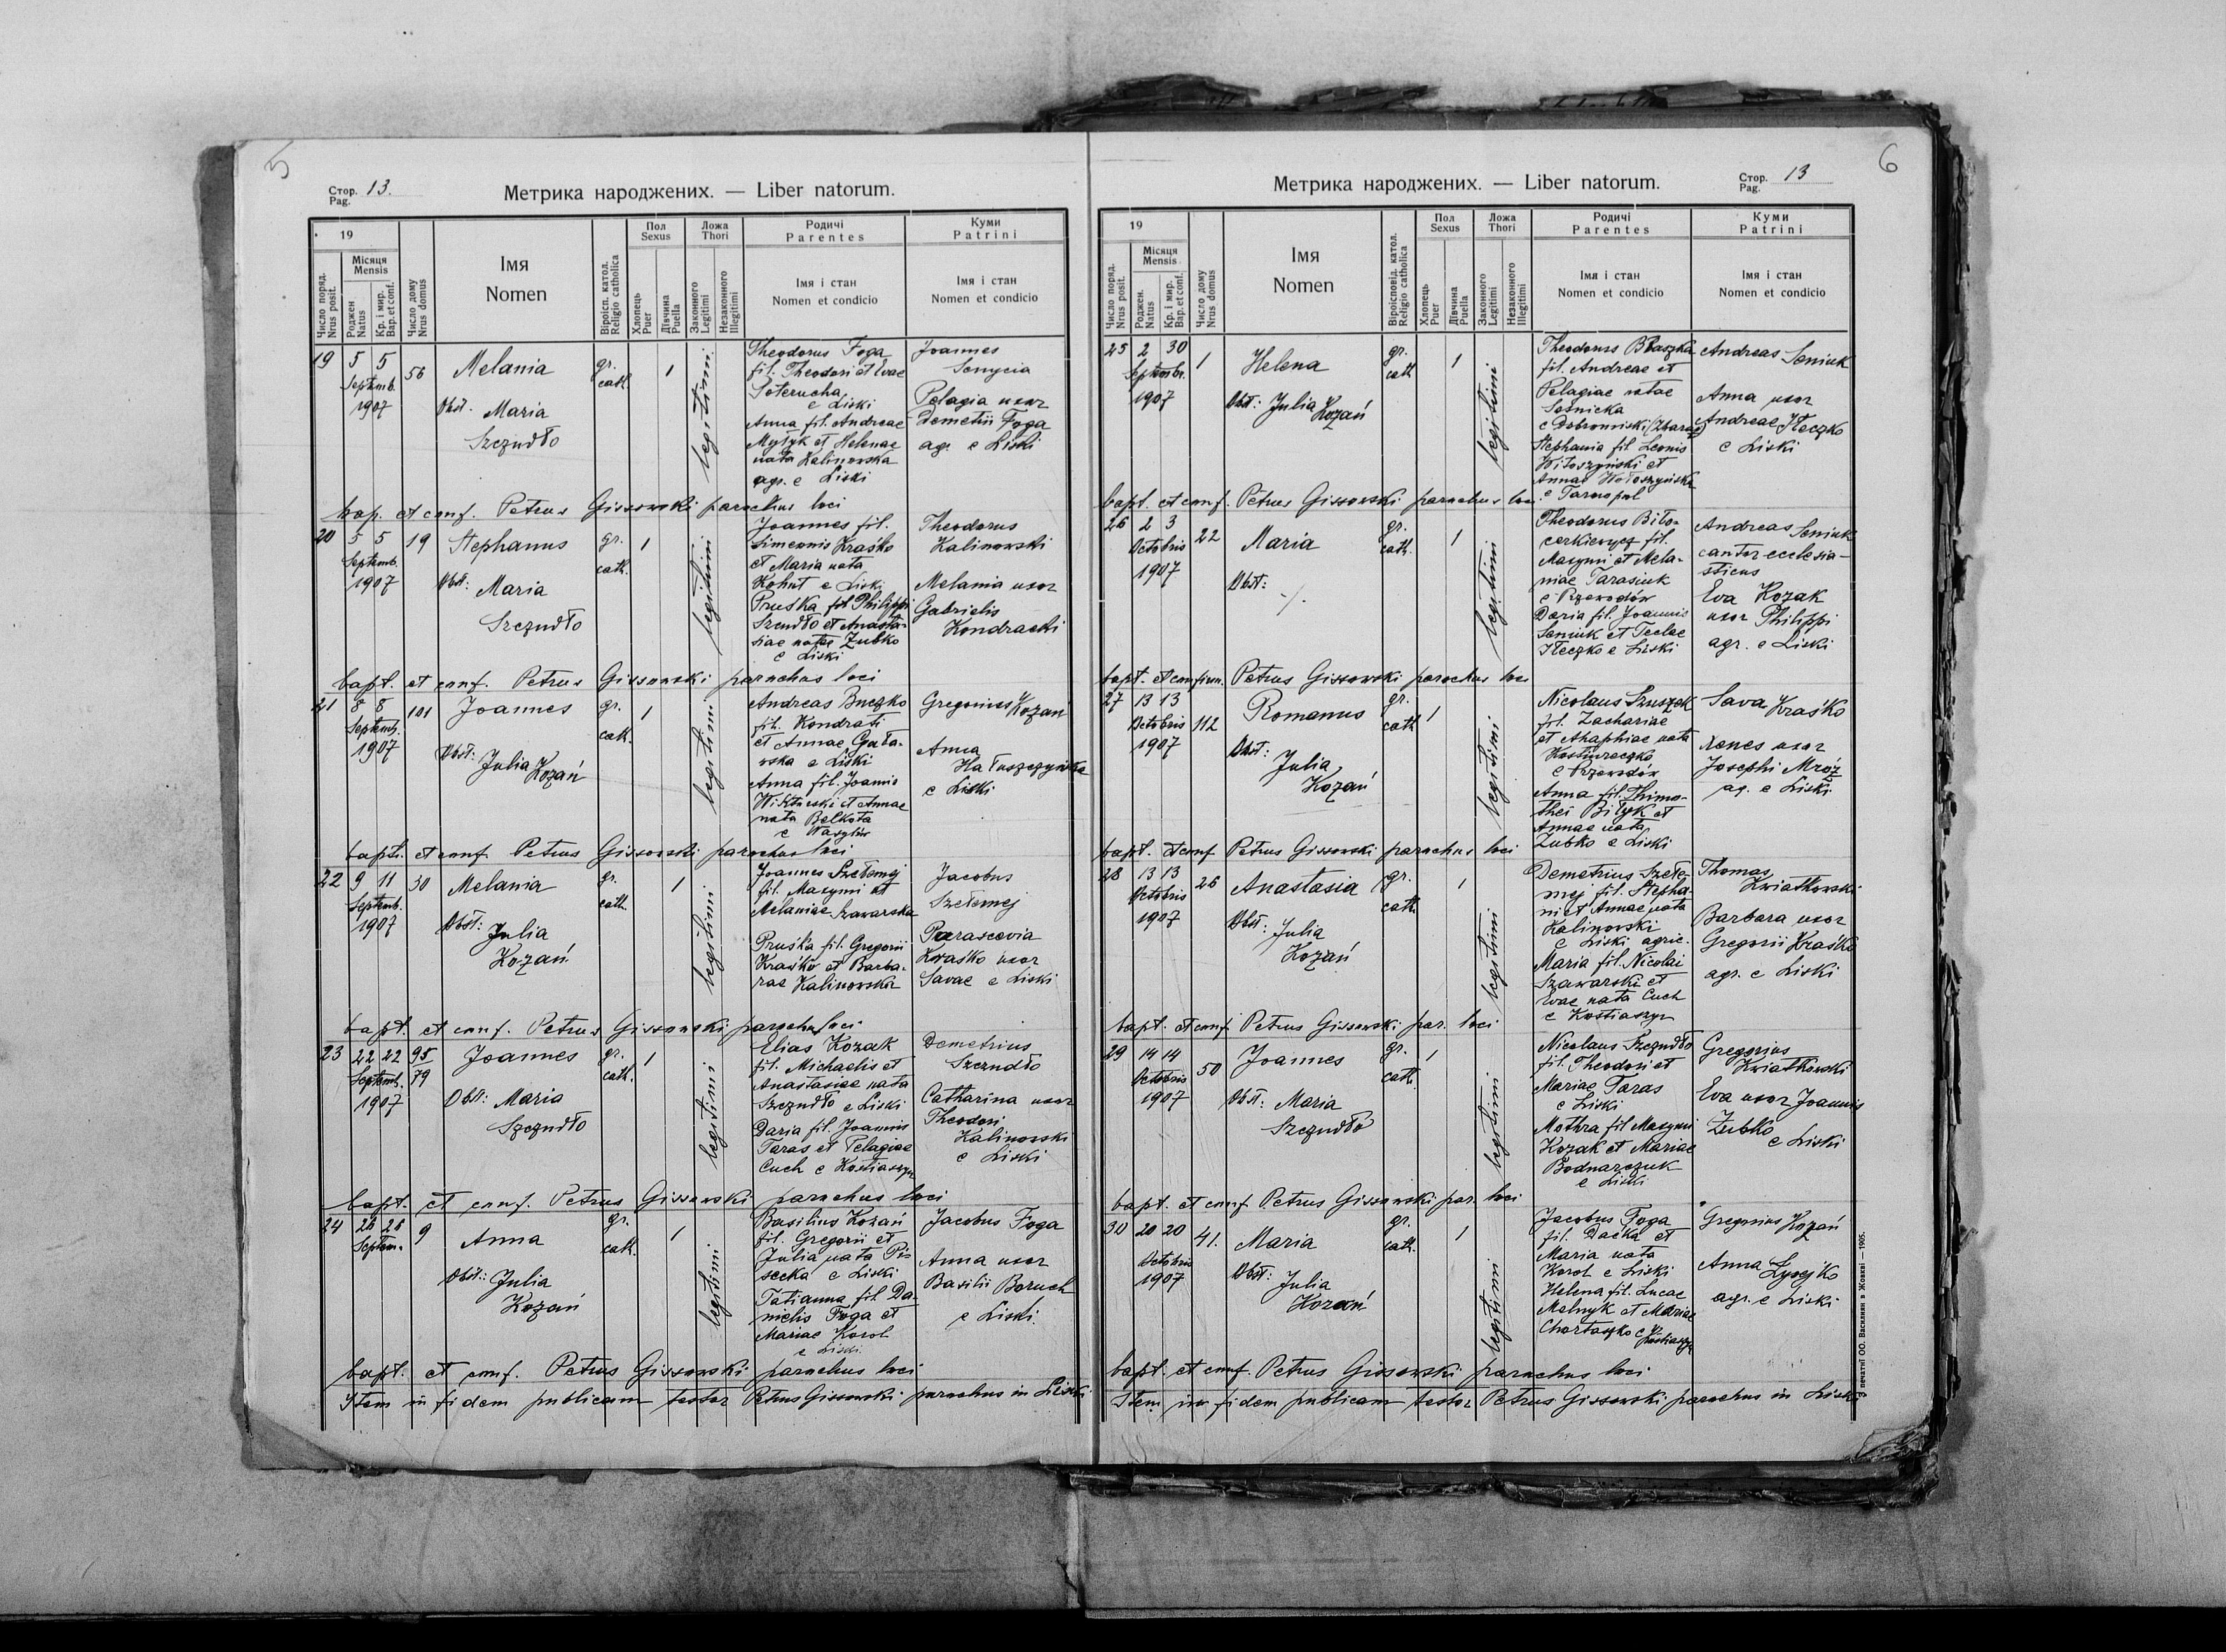 5
Стор. Pag. 13.
Метрика народжених. — Liber natorum.
19
Число поряд. Nrus posit.
Місяця Mensis
Роджен Natus
Кр. і мир. Bap. et conf.
Число дому Nrus domus
Імя
Nomen
Віроісп. катол. Religio catholica
Пол Sexus
Хлопець Puer
Дівчина Puella
Ложа Thori
Законного Legitimi
Незаконного Illegitimi
Родичі
Parentes
Імя і стан
Nomen et condicio
Куми
Patrini
Імя і стан
Nomen et condicio
19 5 5 Septemb. 1907 56
Melania
Obst. Maria
Szczudło
gr. cath. 1 legitimi
Theodorus Foga
fil. Theodori et Evae
Poterucha
e Liski
Anna fil. Andreae
Mytyk et Helenae
nata Kalinowska
agr. e Liski
Joannes
Senycia
Pelagia uxor
Demetrii Foga
ag. e Liski
bap. et conf. Petrus Gissowski parochus loci
20 5 5 Septemb. 1907 19
Stephanus
Obst: Maria
Szczudło
gr. cath. 1 legitimi
Joannes fil.
Simeonis Kraśko
et Maria nata
Kohut e Liski
Pruśka fil. Philippi
Szcudło et Anasta-
siae natae Zubko
e Liski
Theodorus
Kalinowski
Melania uxor
Gabrielis
Kondracki
bapt. et conf. Petrus Gissowski parochus loci
21 8 8 Septemb. 1907 101
Joannes
Obst: Julia Kozań
gr. cath. 1 legitimi
Andreas Buczko
fil. Kondrati
et Annae Gała-
wska e Liski
Anna fil. Joannis
et Annae
nata Bełkota
e Wasylów
Gregorius Kozań
Anna
Hałuszczyńska
e Liski
bapt. et conf Petrus Gissowski parochus loci
22 9 11 Septemb. 1907 30
Melania
Obst: Julia
Kozań
gr. cath. 1 legitimi
Joannes Szełemej
fil. Maxymi et
Melaniae Szawarska
Pruśka fil. Gregorii
Kraśko et Barba-
rae Kalinowska
Jacobus
Szełemej
Parascevia
Kraśko uxor
Savae e Liski
bapt. et conf. Petrus Gissowski parochus loci
23 22 22 Septemb. 1907 95 79
Joannes
Obst: Maria
Szczudło
gr. cath. 1 legitimi
Elias Kozak
fil. Michaelis et
Anastasiae nata
Szczudło e Liski
Daria fil. Joannis
Taras et Pelagiae
Cuch e Kostiaszyn
Demetrius
Szczudło
Catharina uxor
Theodori
Kalinowski
e Liski
bapt. et conf. Petrus Gissowski parochus loci
24 26 26 Septem. 9
Anna
Obst.: Julia
Kozań
gr. cath. 1 legitimi
Basilius Kozań
fil. Gregorii et
Julia nata Pi-
secka e Liski
Tatianna fil. Da-
nielis Foga et
Mariae Korol
e Liski.
Jacobus Foga
Anna uxor
Basilii Boruch
e Liski.
bapt. et conf. Petrus Gissowski parochus loci
Item in fidem publicam testor Petrus Gissowski parochus in Liski
6
Стор. Pag. 13
Метрика народжених. — Liber natorum.
19
Число поряд. Nrus posit.
Місяця Mensis
Роджен. Natus
Кр. і мир. Bap. et conf.
Число дому Nrus domus
Імя
Nomen
Віроісповід. катол. Religio catholica
Пол Sexus
Хлопець Puer
Дівчина Puella
Ложа Thori
Законного Legitimi
Незаконного Illegitimi
Родичі
Parentes
Імя і стан
Nomen et condicio
Куми
Patrini
Імя і стан
Nomen et condicio
25 2 30 Septembr. 1907 1
Helena
Obst: Julia Kozań
gr. cath 1 legitimi
Theodorus Błaszka
fil. Andreae et
Pelagiae natae
Sośnicka
e (Zbaraż)
Stephania fil. Leonis
Witoszyński et
Annae Wołoszyńska
e Tarnopol
Andreas Seniuk
Anna uxor
Andreae Steczko
e Liski
bapt. et conf. Petrus Gissowski parochus loci
26 2 3 Octobris 1907 22
Maria
Obst: -/.
gr. cath. 1 legitimi
Theodorus Biło-
cerkiewycz fil.
Maxymi et Mela-
niae Tarasiuk
e Przewodów
Daria fil. Joannis
Seniuk et Teclae
Steczko e Liski
Andreas Seniuk
cantor ecclesia-
sticus
Eva Kozak
uxor Philippi
agr. e Liski
bapt. et confirm. Petrus Gissowski parochus loci
27 13 13 Octobris 1907 112
Romanus
Obst: Julia
Kozań
gr. cath 1 legitimi
Nicolaus Szuszak
fil. Zachariae
et Ahaphiae nata
e Przewodów
Anna fil. Thimo-
thei Biłyk et
Annae nata
Zubko e Liski
Sava Kraśko
Xenes uxor
Josephi Mróz
ag. e Liski
bapt. et conf Petrus Gissowski parochus loci
28 13 13 Octobris 1907 26
Anastasia
Obst: Julia
Kozań
gr. cath. 1 legitimi
Demetrius Szełe-
mej fil. Stepha-
ni et Annae nata
Kalinowski
e Liski agric.
Maria fil. Nicolai
Szawarski et
Evae nata Cuch
e Kostiaszyn
Thomas
Kwiatkowski
Barbara uxor
Gregorii Kraśko
agr. e Liski
bapt. et conf Petrus Gissowski par. loci
29 14 14 Octobris 1907 50
Joannes
Obst: Maria
Szczudło
gr. cath. 1 legitimi
Nicolaus Szczudło
fil. Theodori et
Mariae Taras
e Liski
Mothra fil Maxymi
Kozak et Mariae
Bodnarczuk
e Liski
Gregorius
Kwiatkowski
Eva uxor Joannis
Zubko
e Liski
bapt. et conf Petrus Gissowski par. loci
30 20 20 Octobris 1907 41.
Maria
Obst: Julia
Kozań
gr. cath. 1 legitimi
Jacobus Foga
fil. Dacka et
Maria nata
Korol e Liski
Helena fil. Lucae
Melnyk et Mariae
Chartaszko e Kostiaszyn
Gregorius Kozań
Anna Łysejko
agr. e Liski
bapt. et conf. Petrus Gissowski parochus loci
Item in fidem publicam testor Petrus Gissowski parochus in Liski
У печатнї ОО. Василиян в Жовкві — 1905.